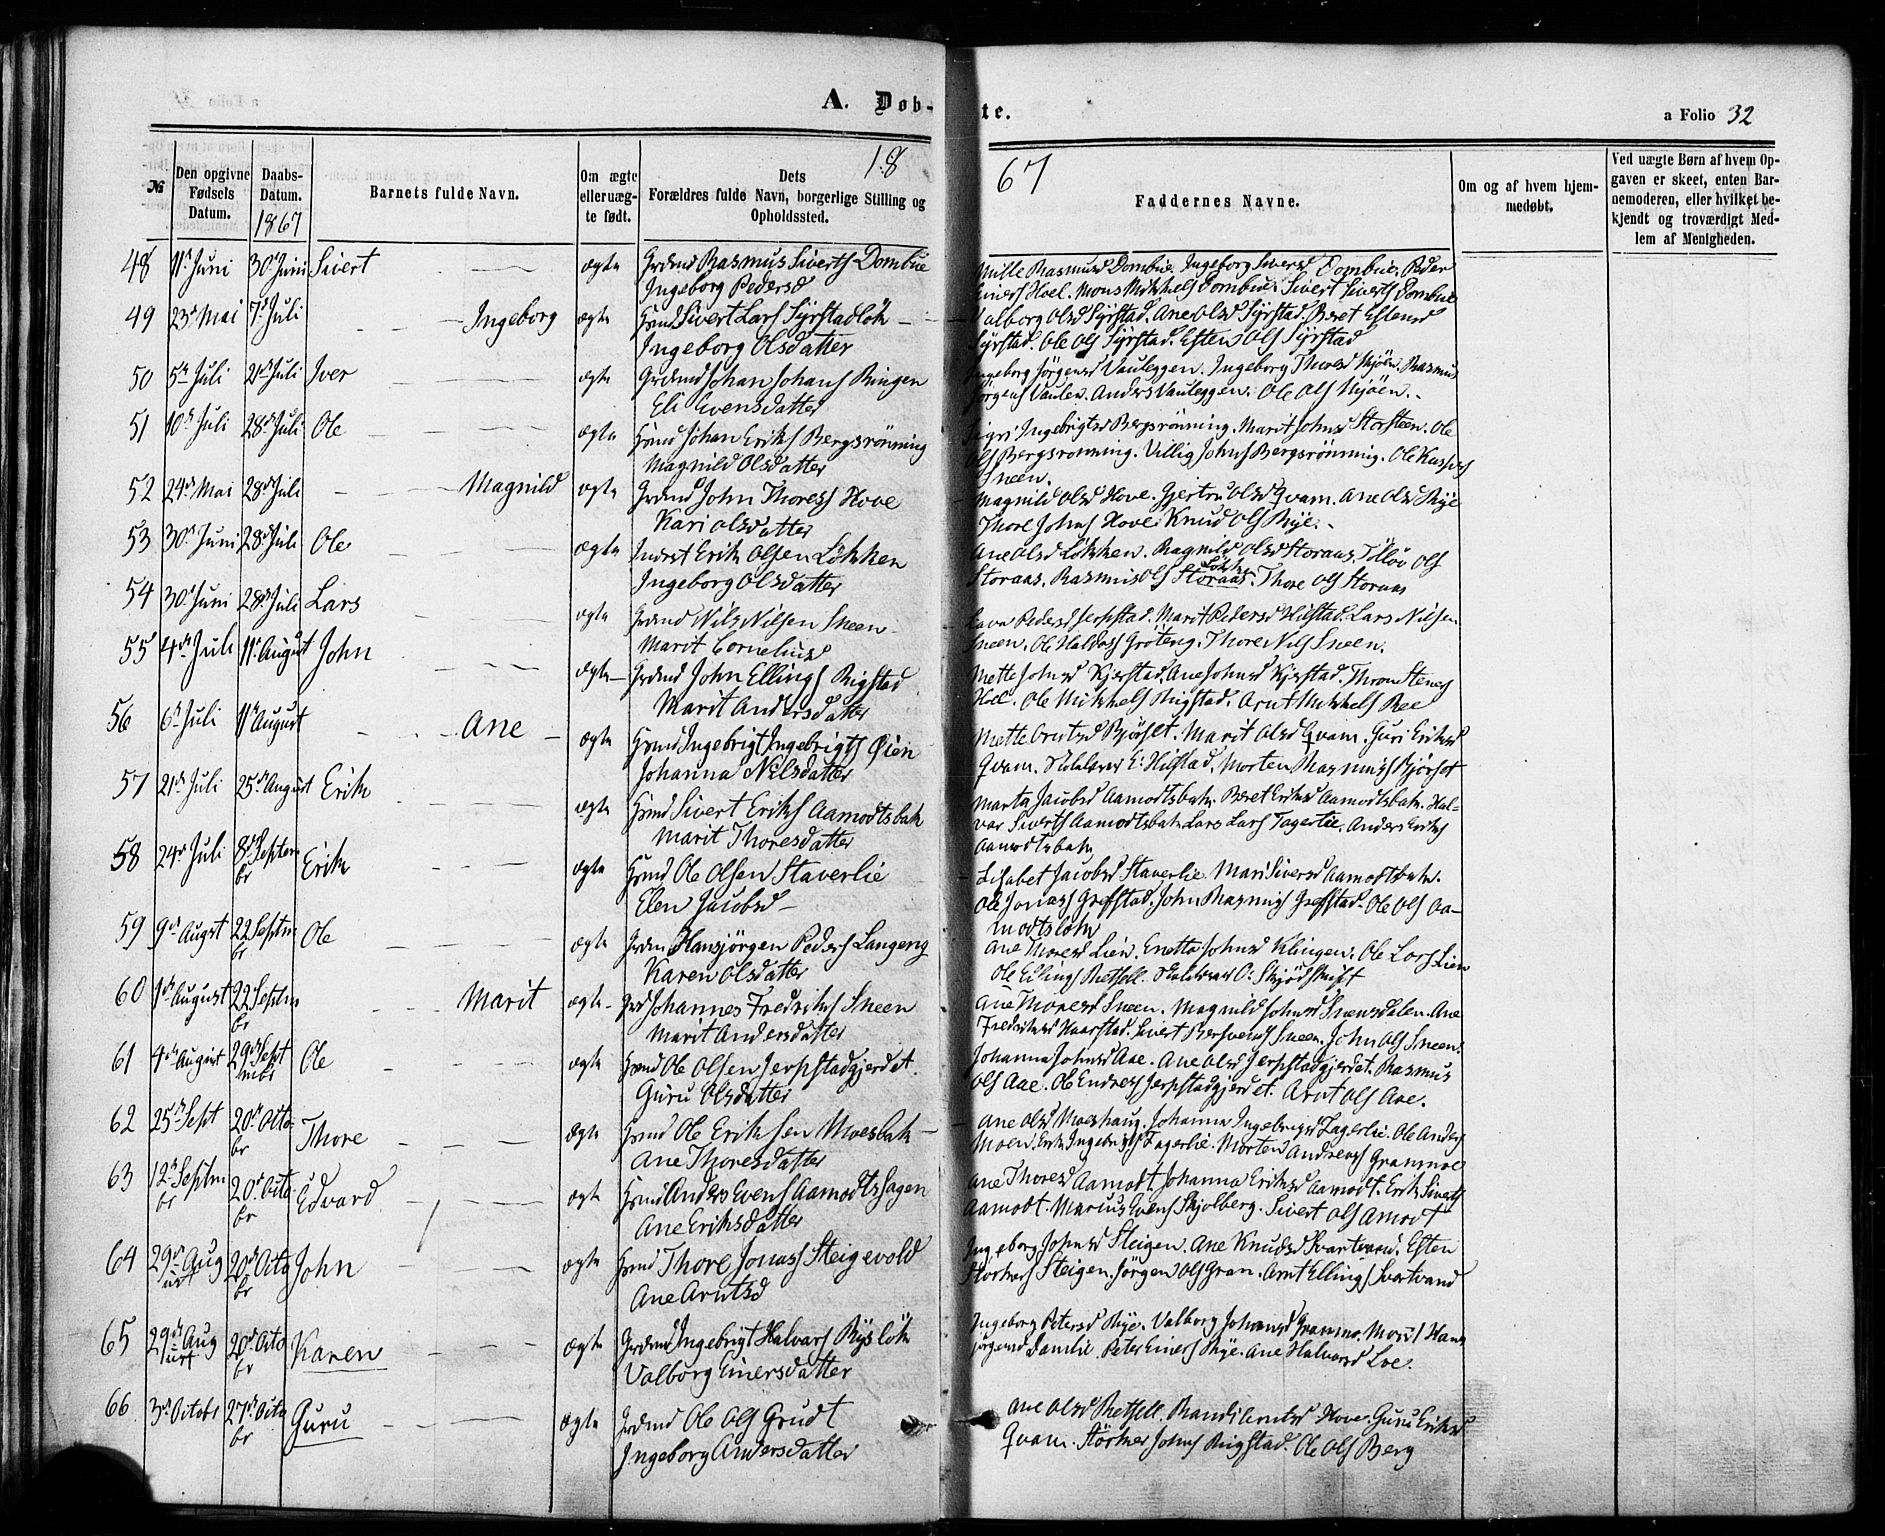 A. Døb-
te.
a Folio 32
18
67
№
Den opgivne Fødsels Datum.
Daabs-Datum.
1867
Barnets fulde Navn.
Om ægte eller uægte født.
Dets Forældres fulde Navn, borgerlige Stilling og Opholdssted.
Faddernes Navne.
Om og af hvem hjemmedøbt.
Ved uægte Børn af hvem Opgaven er skeet, enten Barnemoderen, eller hvilket bekjendt og troværdigt Medlem af Menigheden.
48 11te Juni 30te Juni Sivert ægte Grdmd Rasmus Siverts Dombue
Ingeborg Pedersd
Mille Rasmusd Dombue. Ingeborg Siversd Dombue. Peder
Einers Hoel. Mons Mikkels Dombue. Sivert Siverts Dombue
49 23de Mai 7de Juli Ingeborg ægte Hsmd Sivert Lars Syrstadløk
Ingeborg Olsdatter
Valborg Olsd Syrstad. Ane Olsd Syrstad. Beret Estensd
Syrstad. Ole Ols Syrstad. Esten Ols Syrstad
50 5te Juli 21de Juli Iver ægte Grdmd Johan Johans Ringen
Eli Evensdatter
Ingeborg Jörgensd Vauleggen. Ingeborg Thoresd Mjöen. Rasmus
Jörgens Vaulen. Anders Vauleggen. Ole Ols Mjöen.
51 10de Juli 28de Juli Ole ægte Hsmd Johan Eriks Bergsrönning
Magnild Olsdatter
Sigri Ingebrigtsd Bergsrönning. Marit Johnsd Storsteen. Ole
Ols Bergsrönning. Villig Johns Bergsrönning. Ole Kaspers
Sneen.
52 24de Mai 28de Juli Magnild ægte Grdmd John Thoress Hove
Kari Olsdatter
Magnild Olsd Hove. Gjertru Olsd Qvam. Ane Olsd Rye
Thore Johns Hove. Knud Ols Rye.
53 30te Juni 28de Juli Ole ægte Inderst Erik Olsen Løkken
Ingeborg Olsdatter
Ane Olsd Løkken. Ragnild Olsd Storaas. Tölöv Ols
Storaas. Rasmus Ols Storaas Løkken. Thore Ols Storaas
54 30te Juni 28de Juli Lars ægte Grdmd Nils Nilsen Sneen
Marit Corneliusd
Lava Pedersd Jerpstad. Marit Pedersd Hilstad. Lars Nilsen
Sneen. Ole Haldos Gröteng. Thore Nils Sneen.
55 4de Juli 11te August John ægte Grdmd John Ellings Rigstad
Marit Andersdatter
Mette Johnsd Kjerstad. Ane Johnsd Kjerstad. Thron Stenes
Hoel. Ole Mikkels Rigstad. Arnt Mikkels Ree
56 6te Juli 11te August Ane ægte Hsmd Ingebrigt Ingebrigts Øien
Johanna Nilsdatter
Mette Arntsd Björset. Marit Olsd Qvam. Guri Eriksd
Qvam. Skolelærer E. Hilstad. Morten Rasmuss Björset
57 21de Juli 25de August Erik ægte Hsmd Sivert Eriks Aamodtsbak
Marit Thoresdatter
Marta Jacobsd Aamodtsbak. Beret Eriksd Aamodtsbak. Hal-
var Siverts Aamodtsbak. Lars Lars Fagerlie. Anders Eriks
Aamodtsbak
58 24de Juli 8de Septem
br Erik ægte Hsmd Ole Olsen Staverlie
Elen Jacobsd
Lisabet Jacobsd Staverlie. Mari Siversd Aamodtsbak.
Ole Jonass Grefstad. John Rasmus Grefstad. Ole Ols Aa-
modtsløk
59 9de Augst 22 Septm
br Ole ægte Grdm Hansjörgen Peders Langeng
Karen Olsdatter
Ane Thoresd Lien. Enetta Johnsd Klingen. Ole Lars Lien
Ole Ellings Retsell. Skolelærer O.
60 1ste August 22 Septm
br Marit ægte Grd Johannes Fredriks Sneen
Marit Andersdatter
Ane Thoresd Sneen. Magnild Johnsd Snensdalen. Ane
Fredriksd Haarstad. Sivert Bersvens Sneen. John Ols Sneen.
61 4de August 29de Sept
mbr Ole ægte Hsmd Ole Olsen Jerpstadgjerdet.
Guru Olsdatter
Johanna Johnsd Aae. Ane Olsd Jerpstadgjerdet. Rasmus
Ols Aae. Ole Endress Jerpstadgjerdet. Arnt Ols Aae.
62 25de Sept 20de Octo
br Thore ægte Hsmd Ole Eriksen Moesbak
Ane Thoresdatter
Ane Olsd Moeshaug. Johanna Ingebrigtsd Fagerlie. Ole Anders
Moen. Erik Ingebrigts Fagerlie. Morten Andreas Granmoe
63 12te Septm
br 20de Octo
br Edvard ægte Hsmd Anders Evens Aamodtshagen
Ane Eriksdatter
Ane Thoresd Aamodt. Johanna Eriksd Aamodt. Erik Siverts
Aamodt. Marius Evens Skjølberg. Sivert Ols Amodt
64 29de Aug
ust 20de Octo
br John ægte Hsmd Thore Jonass Steigevold
Ane Arntsd
Ingeborg Johnsd Steigen. Ane Knudsd Svartvand. Esten
Störkers Steigen. Jörgen Ols Gran. Arnt Ellings Svartvand
65 29de Aug
ust 20de Octo
br Karen ægte Grdmd Ingebrigt Halvars Rysløk
Valborg Einersdatter
Ingeborg Petersd Rye. Valborg Johansd Granmo. Marit Hans
jörgensd Damlie. Peter Einers Rye. Ane Halvarsd Loe.
66 3de Octobr 27de Octo
br Guru ægte Grdmd Ole Ols Grudt
Ingeborg Andersdatter
Ane Olsd Retsell. Randi Arntsd Hove. Guru Eriksd
Qvam. Störker Johns Rigstad. Ole Ols Berg